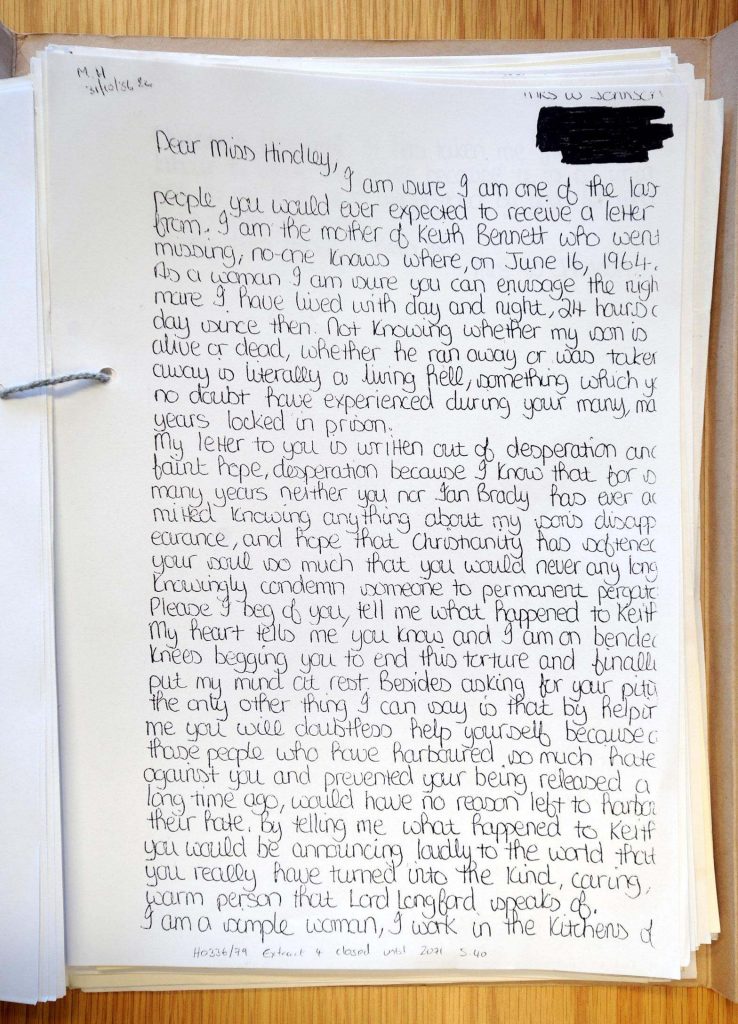 M. H
31/10/86
MRS W JOHNSON
Dear Miss Hindley,
I am sure I am one of the las
people you would ever expected to receive a letter
from. I am the mother of Keith Bennett who went
missing, no-one knows where, on June 16, 1964.
As a woman I am sure you can envisage the nigh
mare I have lived with day and night, 24 hours a
day since then. Not knowing whether my son is
alive or dead, whether he ran away or was taken
away is literally a living hell, something which y
no doubt have experienced during your many, ma
years locked in prison.
My letter to you is written out of desperation and
faint hope, desperation because I know that for s
many years neither you nor Ian Brady has ever ad
mitted knowing anything about my son's disapp
earance, and hope that Christianity has softened
your soul so much that you would never any long
knowingly condemn someone to permanent pergato
Please I beg of you, tell me what happened to Keith
My heart tells me you know and I am on bended
knees begging you to end this torture and finally
put my mind at rest. Besides asking for your piti
the only other thing I can say is that by helpin
me you will doubtless help yourself because a
those people who have harboured so much hate
against you and prevented your being released a
long time ago, would have no reason left to harbou
their hate. By telling me what happened to Keith
you would be announcing loudly to the world that
you really have turned into the kind, caring,
warm person that Lord Longford speaks of.
I am a simple woman, I work in the kitchens of
HO336/79 Extract 4 closed until 2071 S.40